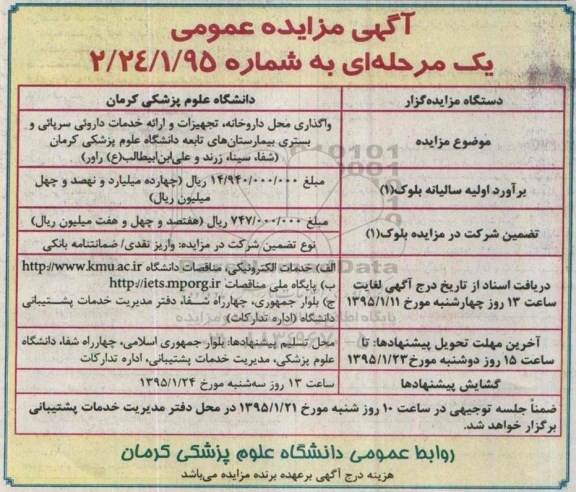 آگهی مزایده عمومی
یک مرحله‌ای به شماره ۲/۲۴/۱/۹۵
دستگاه مزایده‌گزار
دانشگاه علوم پزشکی کرمان
موضوع مزایده
واگذاری محل داروخانه، تجهیزات و ارائه خدمات داروئی سرپائی و
بستری بیمارستان‌های تابعه دانشگاه علوم پزشکی کرمان
(شفا، سینا، زرند و علی‌ابن‌ابیطالب(ع) راور)
برآورد اولیه سالیانه بلوک(۱)
مبلغ ۱۴/۹۴۰/۰۰۰/۰۰۰ ریال (چهارده میلیارد و نهصد و چهل
میلیون ریال)
تضمین شرکت در مزایده بلوک(۱)
مبلغ ۷۴۷/۰۰۰/۰۰۰ ریال (هفتصد و چهل و هفت میلیون ریال)
نوع تضمین شرکت در مزایده: واریز نقدی/ ضمانتنامه بانکی
دریافت اسناد از تاریخ درج آگهی لغایت
ساعت ۱۳ روز چهارشنبه مورخ ۱۳۹۵/۱/۱۱
الف) خدمات الکترونیکی، مناقصات دانشگاه http://www.kmu.ac.ir
ب) پایگاه ملی مناقصات http://iets.mporg.ir
ج) بلوار جمهوری، چهارراه شفا، دفتر مدیریت خدمات پشتیبانی
دانشگاه (اداره تدارکات)
آخرین مهلت تحویل پیشنهادها: تا
ساعت ۱۵ روز دوشنبه مورخ ۱۳۹۵/۱/۲۳
محل تسلیم پیشنهادها: بلوار جمهوری اسلامی، چهارراه شفا، دانشگاه
علوم پزشکی، مدیریت خدمات پشتیبانی، اداره تدارکات
گشایش پیشنهادها
ساعت ۱۳ روز سه‌شنبه مورخ ۱۳۹۵/۱/۲۴
ضمناً جلسه توجیهی در ساعت ۱۰ روز شنبه مورخ ۱۳۹۵/۱/۲۱ در محل دفتر مدیریت خدمات پشتیبانی
برگزار خواهد شد.
روابط عمومی دانشگاه علوم پزشکی کرمان
هزینه درج آگهی برعهده برنده مزایده می‌باشد